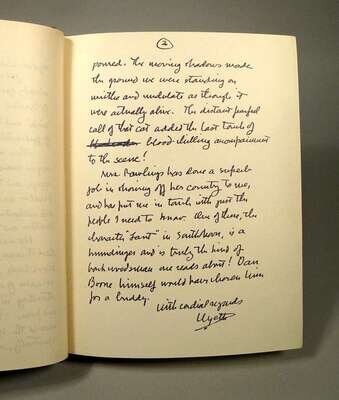 2
poured. The moving shadows made
the ground we were standing on
writhe and undulate as though it
were actually alive. The distant fearful
call of that cat added the last touch of
blood-chilling accompaniment
to the scene!
Mrs. Rawlings has done a superb
job in showing off her county to me,
and has put me in touch with just the
people I need to know. One of these, the
character "Lant" in South Moon, is a
humdinger and is truly the kind of
backwoodsman one reads about! Dan
Boone himself would have chosen him
for a buddy.
with cordial regards
Wyeth